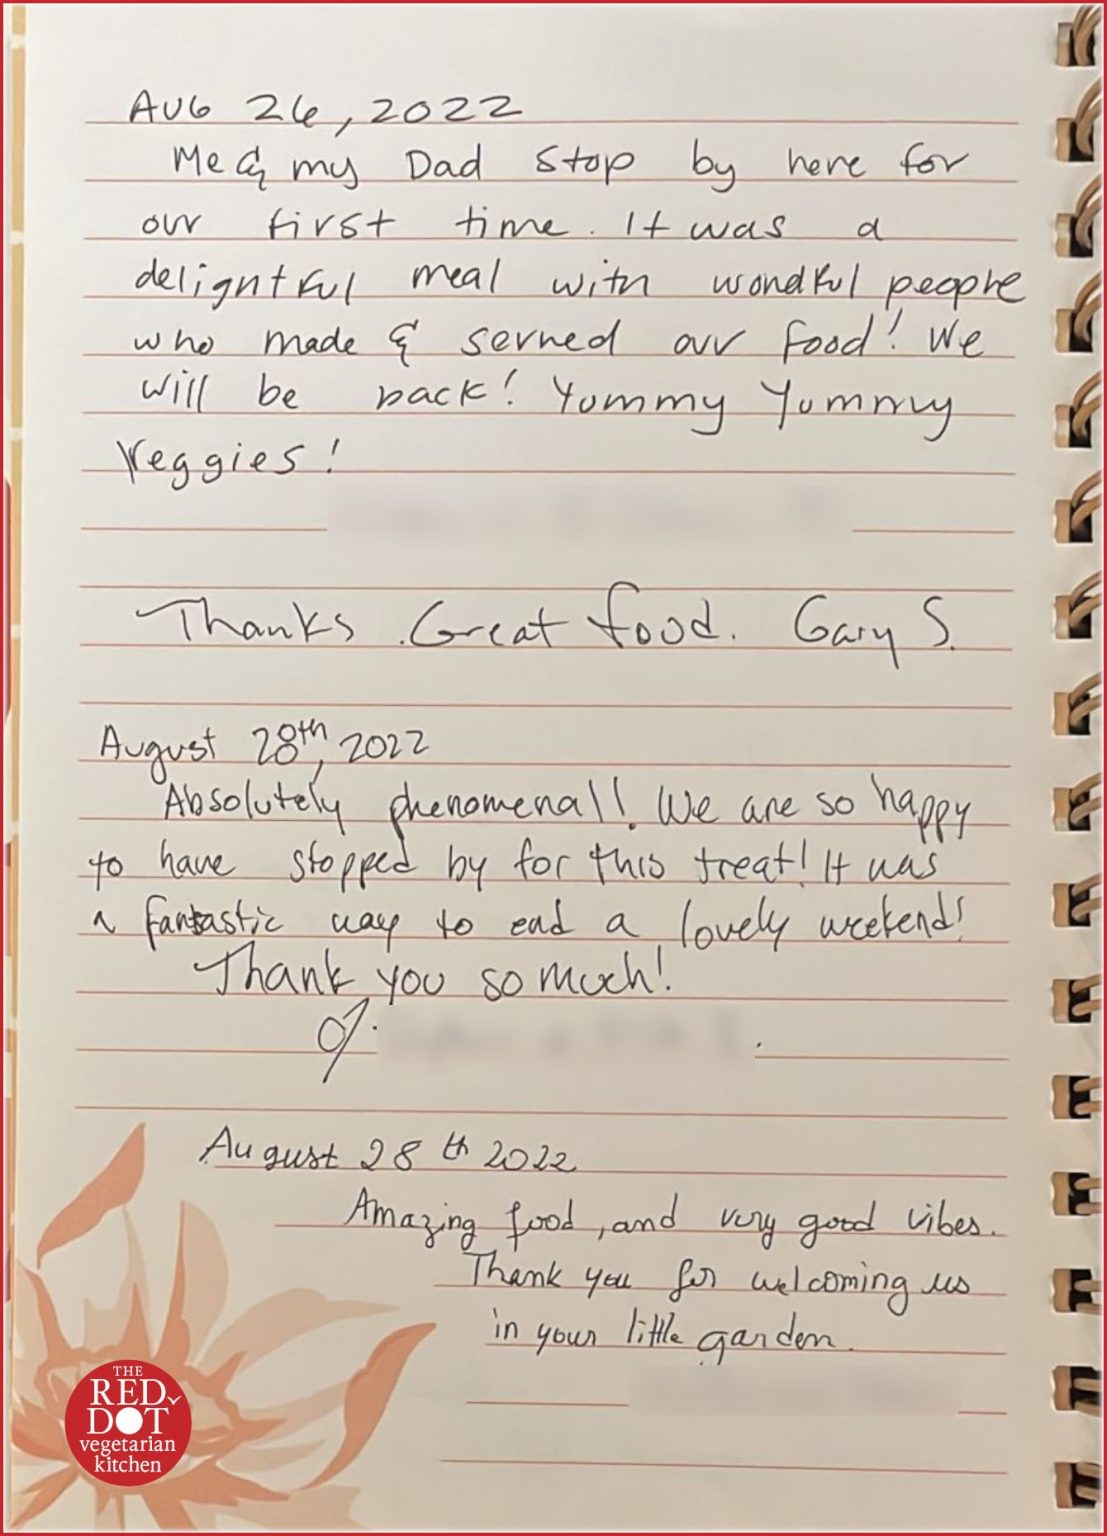 AUG 26, 2022
Me & my Dad stop by here for
our first time. It was a
delightful meal with wondful people
who made & serned our food! We
will be back! Yummy Yummy
Veggies!
Thanks. Great food. Gary S.
August 28th, 2022
Absolutely phenomenal! We are so happy
to have stopped by for this treat! It was
a fantastic way to end a lovely weekend!
Thank you so much!
August 28th 2022
Amazing food, and very good vibes.
Thank you for welcoming us
in your little garden.
THE
RED
DOT
vegetarian
kitchen